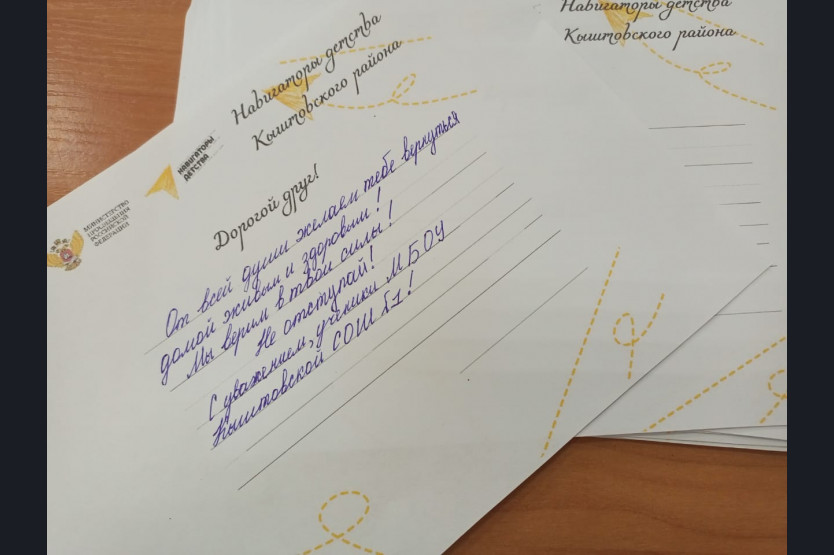 Навигаторы детства
Кыштовского района
МИНИСТЕРСТВО
ПРОСВЕЩЕНИЯ
РОССИЙСКОЙ
ФЕДЕРАЦИИ
НАВИГАТОРЫ
ДЕТСТВА
Дорогой друг!
От всей души желаем тебе вернуться
домой живым и здоровым!
Мы верим в твои силы!
Не отступай!
С уважением, ученики МБОУ
Кыштовской СОШ №1!
Навигаторы детства
Кыштовского района